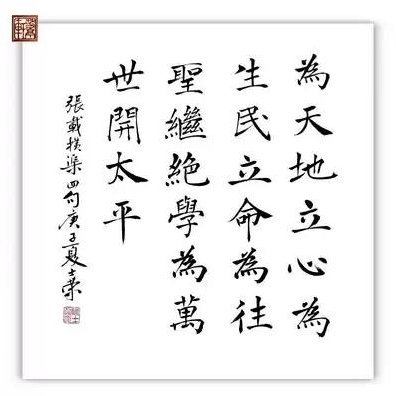 為天地立心為
生民立命為往
聖繼絕學為萬
世開太平
張載橫渠四句庚子夏士榮